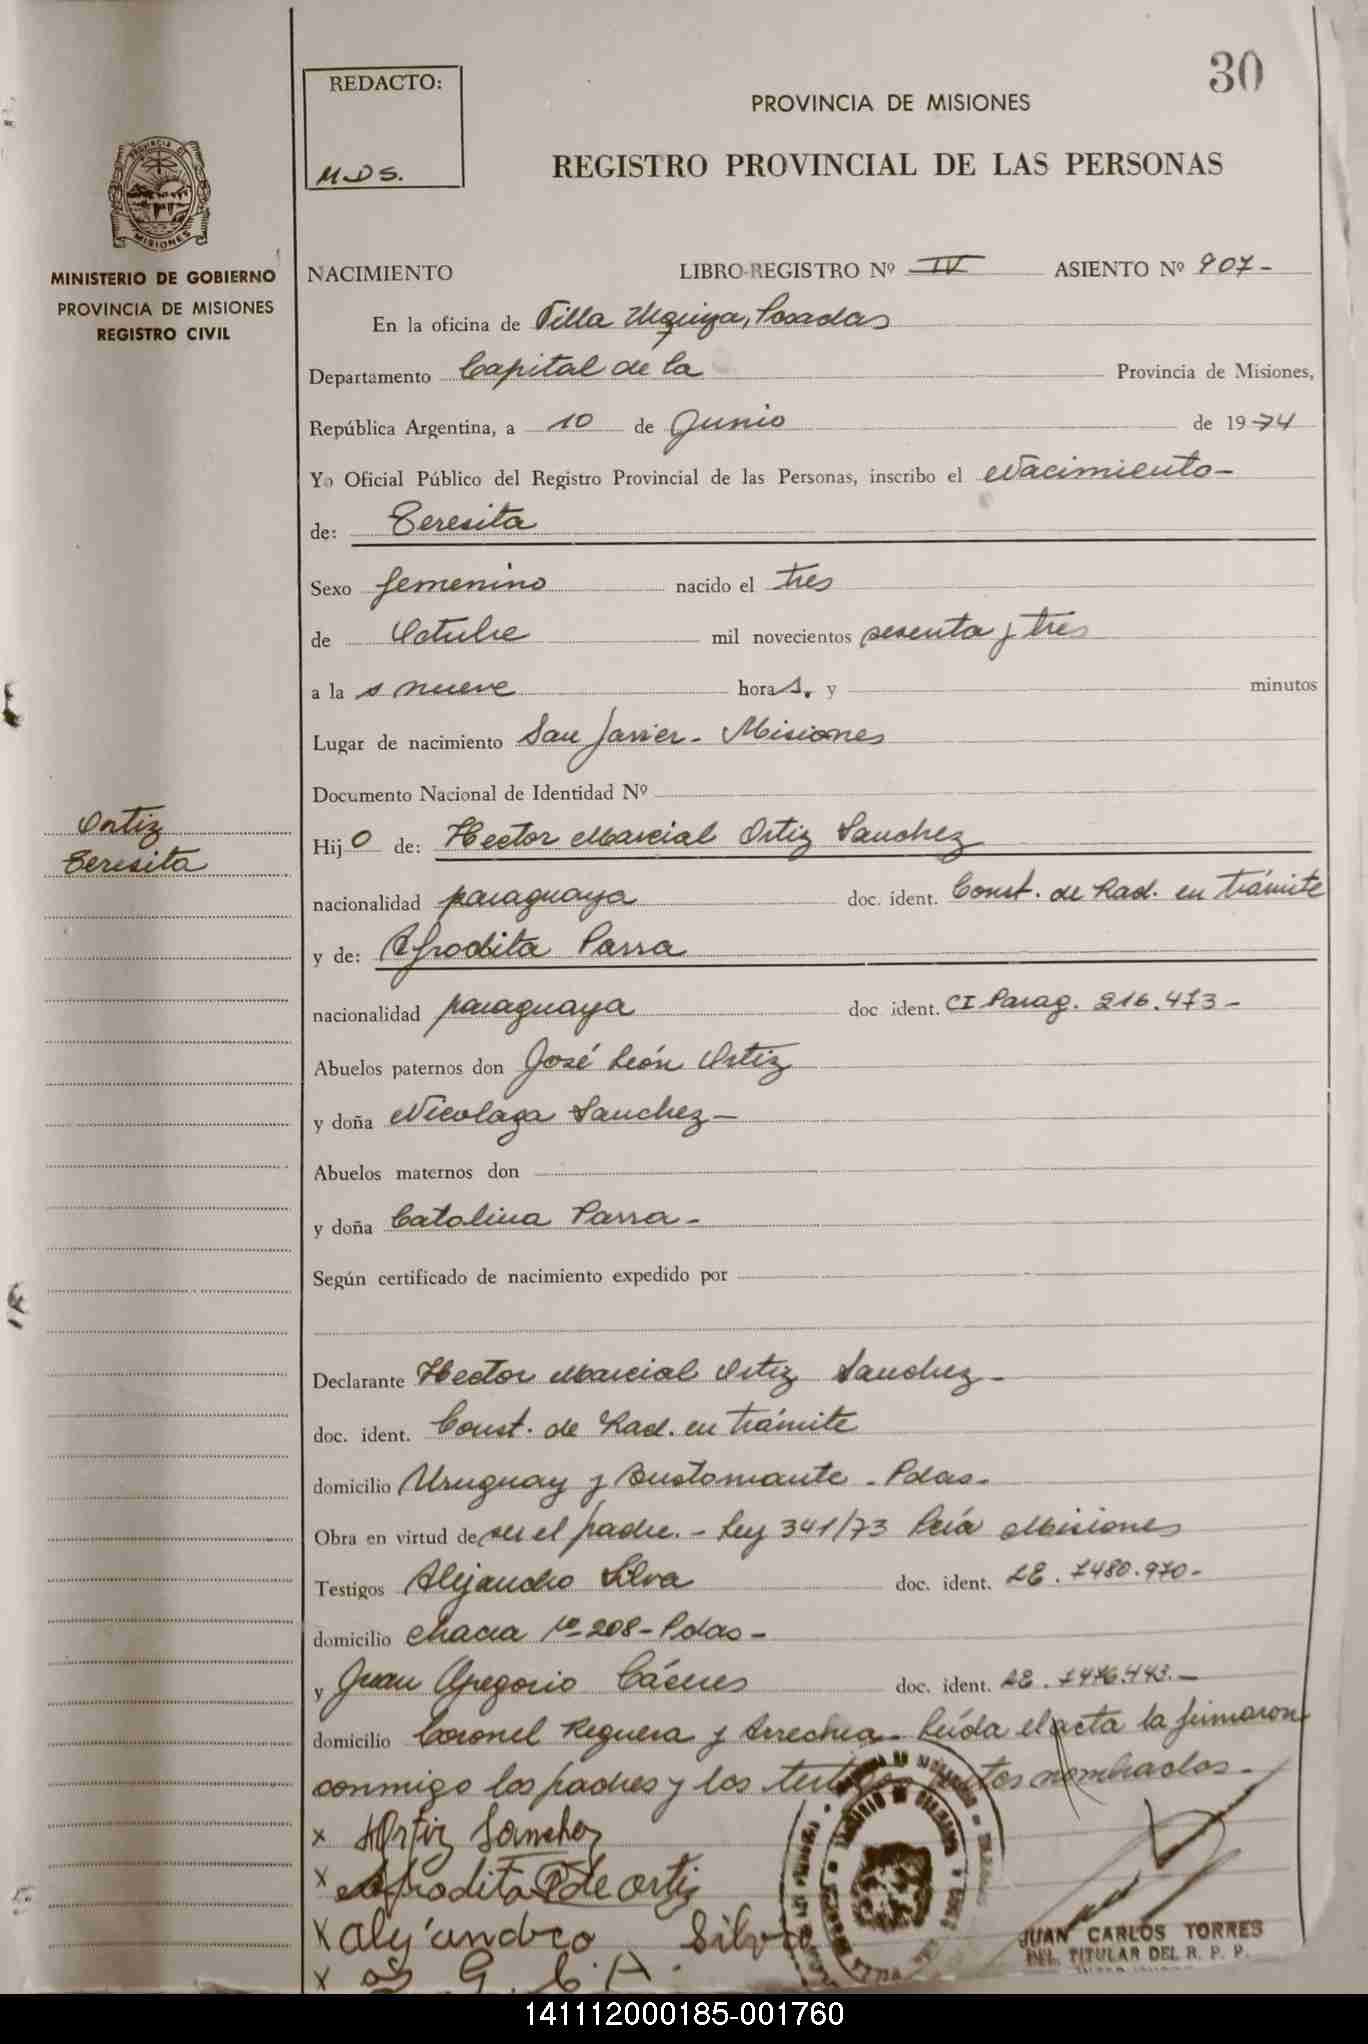 30
REDACTO:
M.D.S.
PROVINCIA DE MISIONES
REGISTRO PROVINCIAL DE LAS PERSONAS
PROVINCIA DE
MISIONES
MINISTERIO DE GOBIERNO
PROVINCIA DE MISIONES
REGISTRO CIVIL
NACIMIENTO LIBRO-REGISTRO Nº IV ASIENTO Nº 907-
En la oficina de Villa Urquiza, Posadas
Departamento Capital de la Provincia de Misiones,
República Argentina, a 10 de Junio de 1974
Yo Oficial Público del Registro Provincial de las Personas, inscribo el Nacimiento-
de: Teresita
Sexo femenino nacido el tres
de Octubre mil novecientos sesenta y tres
a las nueve horas, y minutos
Lugar de nacimiento San Javier - Misiones
Documento Nacional de Identidad Nº
Ortiz
Teresita
Hijo de: Hector Marcial Ortiz Sanchez
nacionalidad paraguaya doc. ident. Const. de Rad. en trámite
y de: Afrodita Parra
nacionalidad paraguaya doc ident. CI Parag. 216.473-
Abuelos paternos don José León Ortiz
y doña Nicolaza Sanchez-
Abuelos maternos don
y doña Catalina Parra-
Según certificado de nacimiento expedido por
Declarante Hector Marcial Ortiz Sanchez-
doc. ident. Const. de Rad. en trámite
domicilio Uruguay y Bustamante - Pdas-
Obra en virtud de ser el padre.- Ley 341/73 Pcia Misiones
Testigos Alejandro Silva doc. ident. LE. 7480.970-
domicilio Chacra Nº 208-Pdas-
y Juan Gregorio Cáceres doc. ident. LE. 7476.443.-
domicilio Coronel Reguera y Arrechea- Leída el acta la firmaron
conmigo los padres y los testigos nombrados-
x HOrtiz Sanchez
x Afrodita P de ortiz
x alejandro Silva
x G. C. A.
JUAN CARLOS TORRES
DEL. TITULAR DEL R. P. P.
141112000185-001760